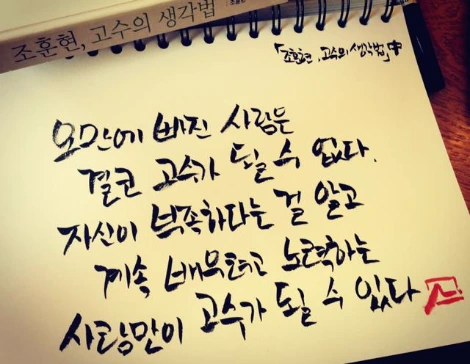 조훈현, 고수의 생각법
「조훈현, 고수의 생각법」中
오만에 빠진 사람은
결코 고수가 될 수 없다.
자신이 부족하다는 걸 알고
계속 배우려고 노력하는
사람만이 고수가 될 수 있다